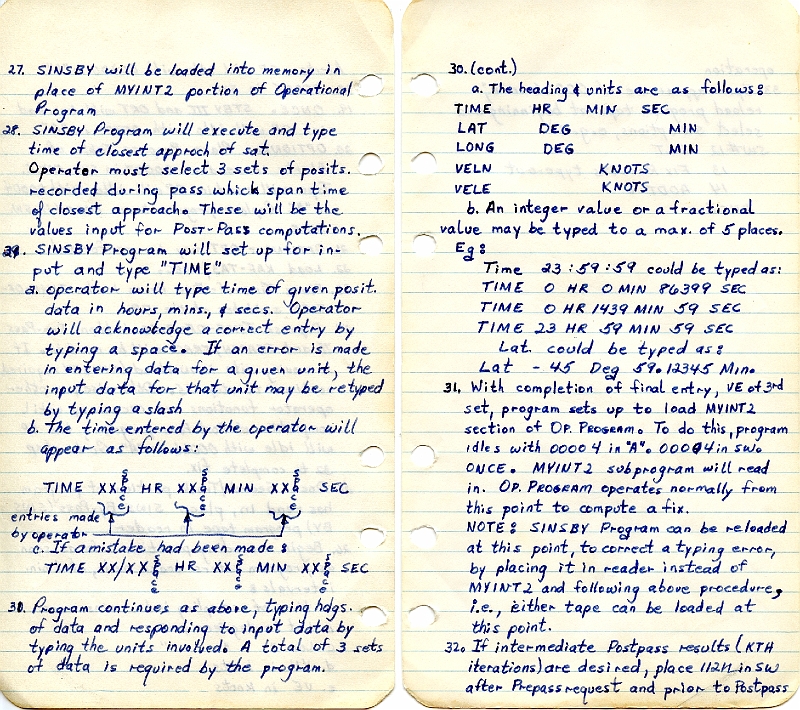 27. SINSBY will be loaded into memory in
place of MYINT2 portion of Operational
Program
28. SINSBY Program will execute and type
time of closest approch of sat.
Operator must select 3 sets of posits.
recorded during pass which span time
of closest approach. These will be the
values input for Post-Pass computations.
29. SINSBY Program will set up for in-
put and type "TIME"
a. operator will type time of given posit.
data in hours, mins., & secs. Operator
will acknowledge a correct entry by
typing a space. If an error is made
in entering data for a given unit, the
input data for that unit may be retyped
by typing a slash
b. The time entered by the operator will
appear as follows:
TIME XX space HR XX space MIN XX space SEC
entries made
by operator
c. If a mistake had been made:
TIME XX/XX space HR XX space MIN XX space SEC
30. Program continues as above, typing hdgs.
of data and responding to input data by
typing the units involved. A total of 3 sets
of data is required by the program.
30. (cont.)
a. The heading & units are as follows:
TIME HR MIN SEC
LAT DEG MIN
LONG DEG MIN
VELN KNOTS
VELE KNOTS
b. An integer value or a fractional
value may be typed to a max. of 5 places.
Eg:
Time 23:59:59 could be typed as:
TIME 0 HR 0 MIN 86399 SEC
TIME 0 HR 1439 MIN 59 SEC
TIME 23 HR 59 MIN 59 SEC
Lat. could be typed as:
Lat - 45 Deg 59.12345 Min.
31. With completion of final entry, VE of 3rd
set, program sets up to load MYINT2
section of Op. Program. To do this, program
idles with 00004 in "A". 00004 in sw.
ONCE. MYINT2 subprogram will read
in. Op. Program operates normally from
this point to compute a fix.
NOTE: SINSBY Program can be reloaded
at this point, to correct a typing error,
by placing it in reader instead of
MYINT2 and following above procedure,
i.e., either tape can be loaded at
this point.
32. If intermediate Postpass results (KTH
iterations) are desired, place 11211 in SW
after Prepass request and prior to Postpass